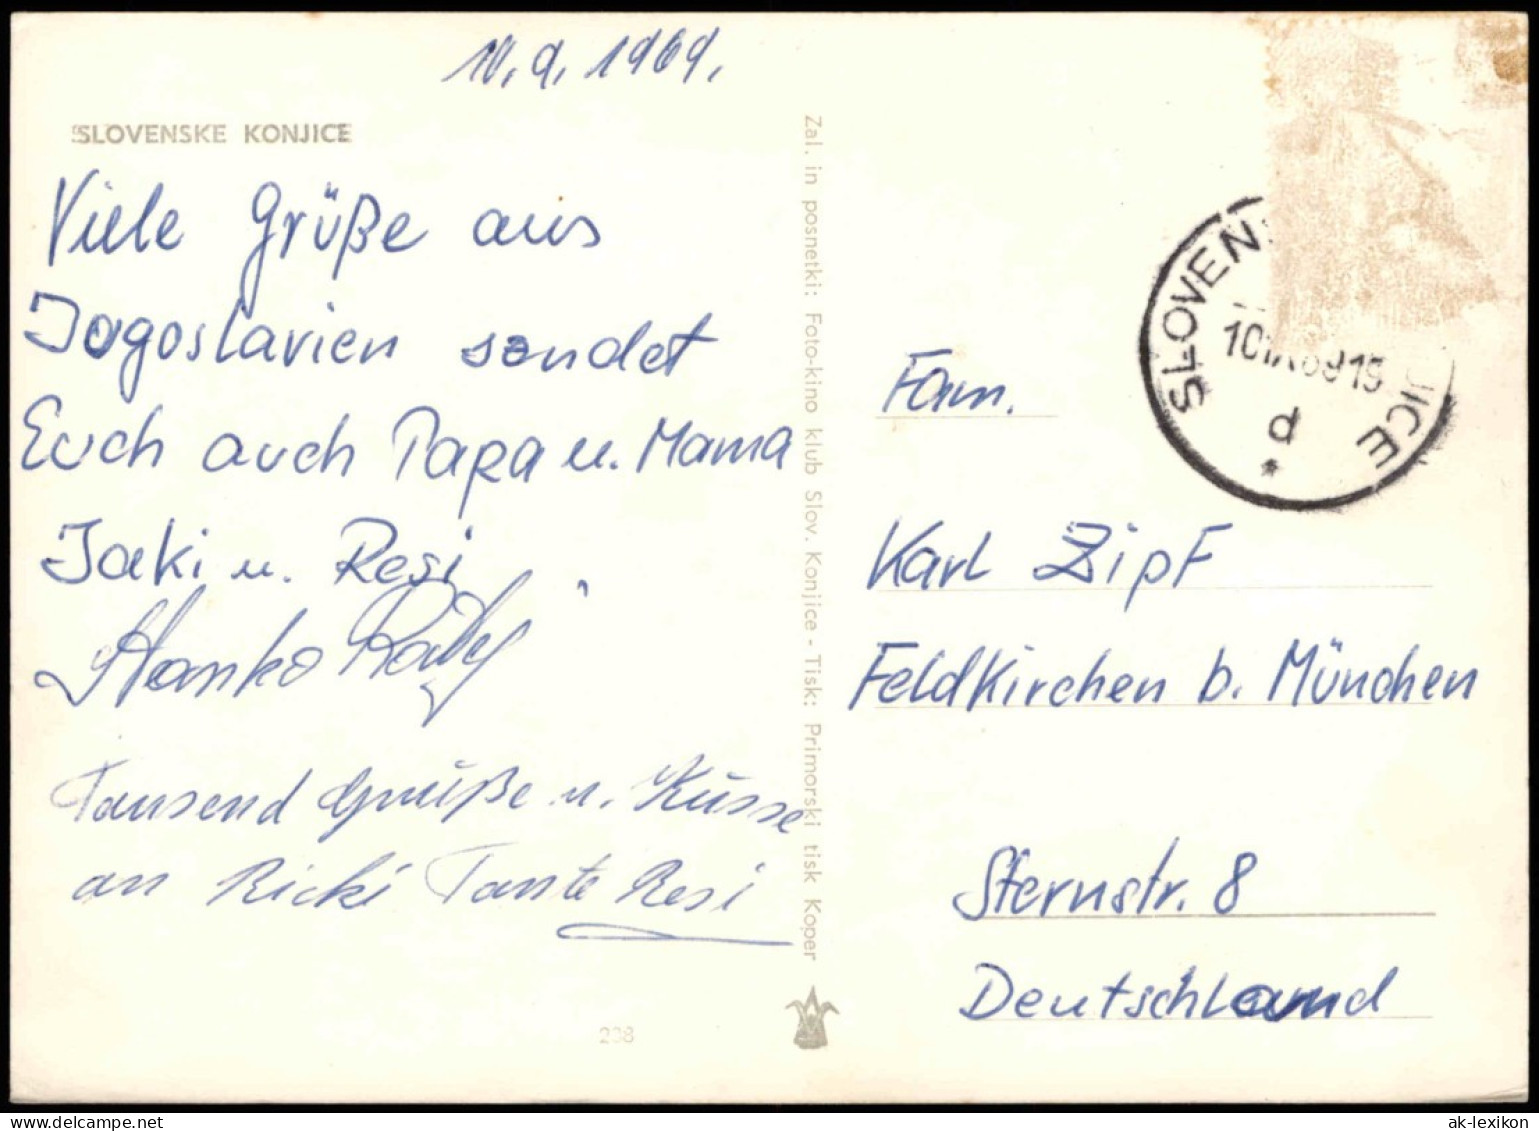 10.9.1969.
SLOVENSKE KONJICE
Viele Grüße aus
Jogoslavien sendet
Euch auch Papa u. Mama
Jaki u. Resi
Hanko
Tausend Grüße u. Küsse
an Ricki Tante Resi
238
Zal. in posnetki: Foto-kino klub Slov. Konjice - Tisk: Primorski tisk Koper
SLOVEN JICE
10 IX 69 19
d
Fam.
Karl Zipf
Feldkirchen b. München
Sternstr. 8
Deutschland
ak-lexikon